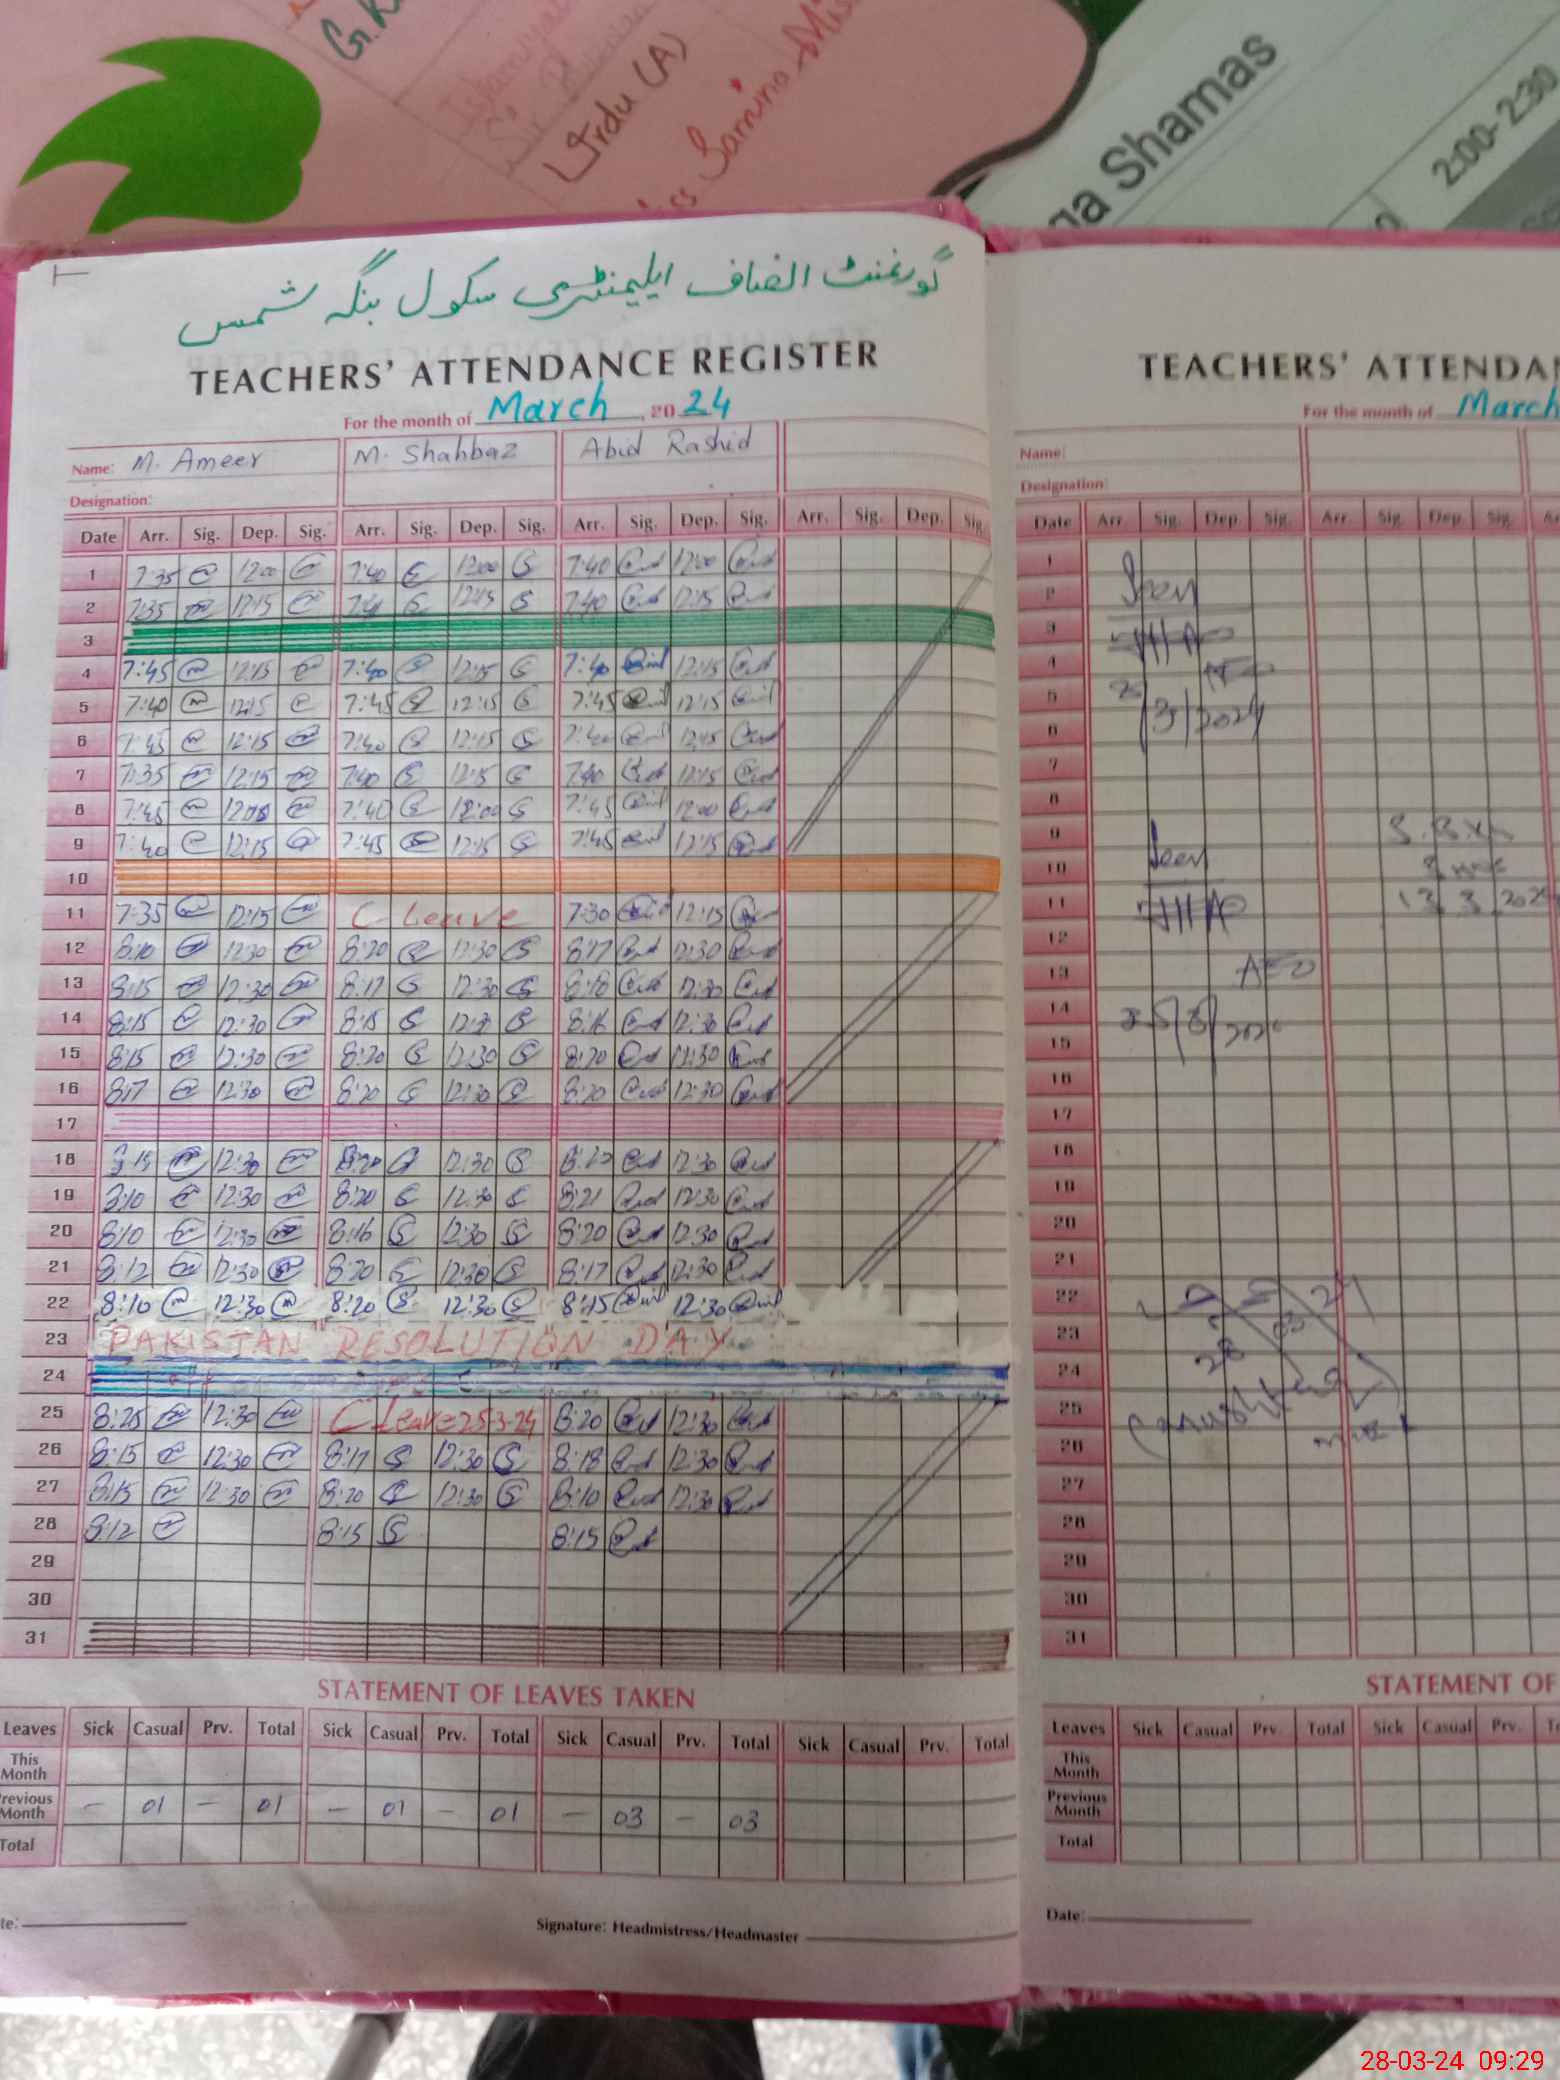 G.K
Islamiyat
Sir
Urdu (A)
Samina Miss
ga Shamas
2:00-2:30
گورنمنٹ انصاف ایلیمنٹری سکول بنگہ شمس
TEACHERS' ATTENDANCE REGISTER
For the month of March, 2024
Name: M. Ameer M. Shahbaz Abid Rashid
Designation:
Date Arr. Sig. Dep. Sig. Arr. Sig. Dep. Sig. Arr. Sig. Dep. Sig. Arr. Sig. Dep. Sig.
1 7:35 12:00 7:40 12:00 7:40 12:00
2 7:35 12:15 7:40 12:15 7:40 12:15
3
4 7:45 12:15 7:40 12:15 7:40 12:15
5 7:40 12:15 7:45 12:15 7:45 12:15
6 7:45 12:15 7:40 12:15 7:40 12:15
7 7:35 12:15 7:40 12:15 7:40 12:15
8 7:45 12:00 7:40 12:00 7:45 12:00
9 7:40 12:15 7:45 12:15 7:45 12:15
10
11 7:35 12:15 C Leave 7:30 12:15
12 8:10 12:30 8:20 12:30 8:17 12:30
13 8:15 12:30 8:17 12:30 8:18 12:30
14 8:15 12:30 8:15 12:30 8:16 12:30
15 8:15 12:30 8:20 12:30 8:20 12:30
16 8:17 12:30 8:20 12:30 8:20 12:30
17
18 8:15 12:30 8:20 12:30 12:30
19 8:10 12:30 8:20 12:30 8:21 12:30
20 8:10 12:30 8:16 12:30 8:20 12:30
21 8:12 12:30 8:20 12:30 8:17 12:30
22 8:10 12:30 8:20 12:30 8:15 12:30
23 PAKISTAN RESOLUTION DAY
24
25 8:25 12:30 C Leave 25-3-24 8:20 12:30
26 8:15 12:30 8:17 12:30 8:18 12:30
27 8:15 12:30 8:20 12:30 8:10 12:30
28 8:12 8:15 8:15
29
30
31
STATEMENT OF LEAVES TAKEN
Leaves Sick Casual Prv. Total Sick Casual Prv. Total Sick Casual Prv. Total Sick Casual Prv. Total
This Month
Previous Month – 01 – 01 – 01 – 01 – 03 – 03
Total
te:
Signature: Headmistress/Headmaster
TEACHERS' ATTENDA
For the month of March
Name:
Designation:
Date Arr. Sig. Dep. Sig. Arr. Sig. Dep. Sig.
1
2 Seen
3
4
5
6
7
8
9
10 Seen
11
12
13 AEO
14
15
16
17
18
19
20
21
22
23
24
25
26
27
28
29
30
31
STATEMENT OF
Leaves Sick Casual Prv. Total Sick Casual Prv.
This Month
Previous Month
Total
Date:
28-03-24 09:29